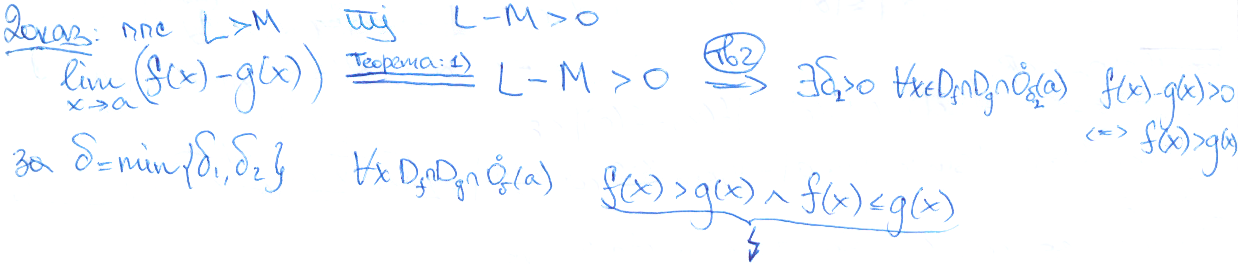 Доказ: ппс L>M тј L-M>0
lim x→a (f(x)-g(x)) =Теорема: 1)= L-M>0 ⟹(Тв2) ∃δ₂>0 ∀x∈D_f∩D_g∩O̊_δ₂(a) f(x)-g(x)>0
<=> f(x)>g(x)
за δ=min{δ₁,δ₂} ∀x D_f∩D_g∩O̊_δ(a) f(x)>g(x) ∧ f(x)≤g(x)
↯